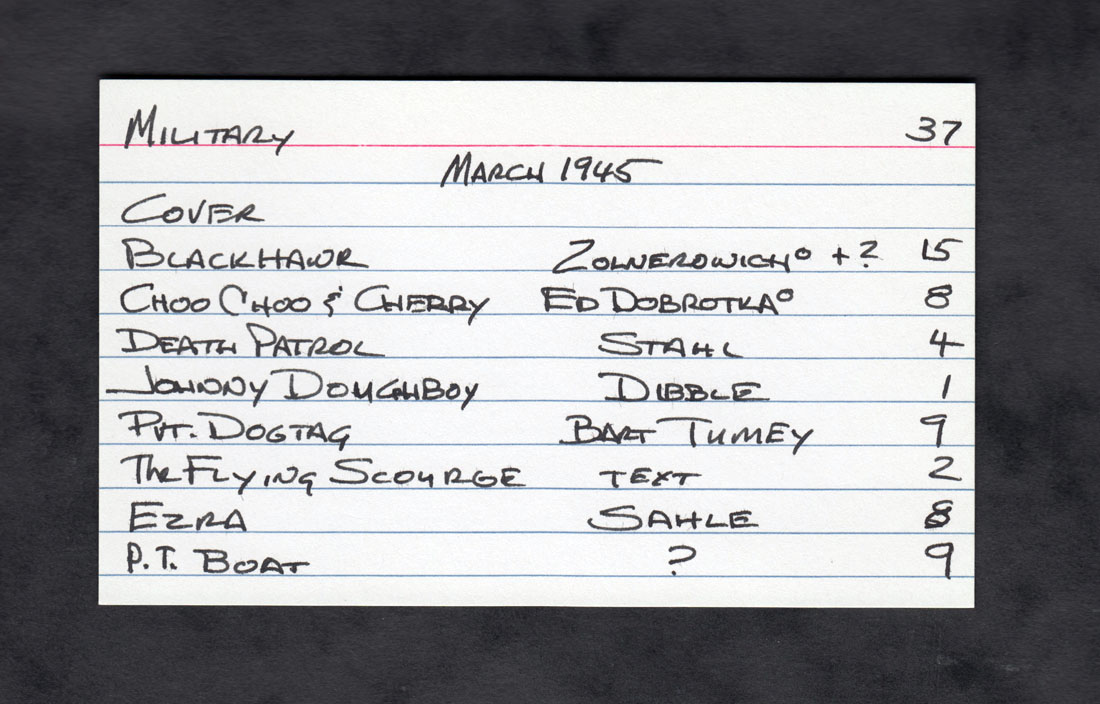 Military 37
March 1945
Cover
Blackhawk Zolnerowich° + ? 15
Choo Choo & Cherry Ed Dobrotka° 8
Death Patrol Stahl 4
Johnny Doughboy Dibble 1
Pvt. Dogtag Bart Tumey 9
The Flying Scourge text 2
Ezra Sahle 8
P.T. Boat ? 9